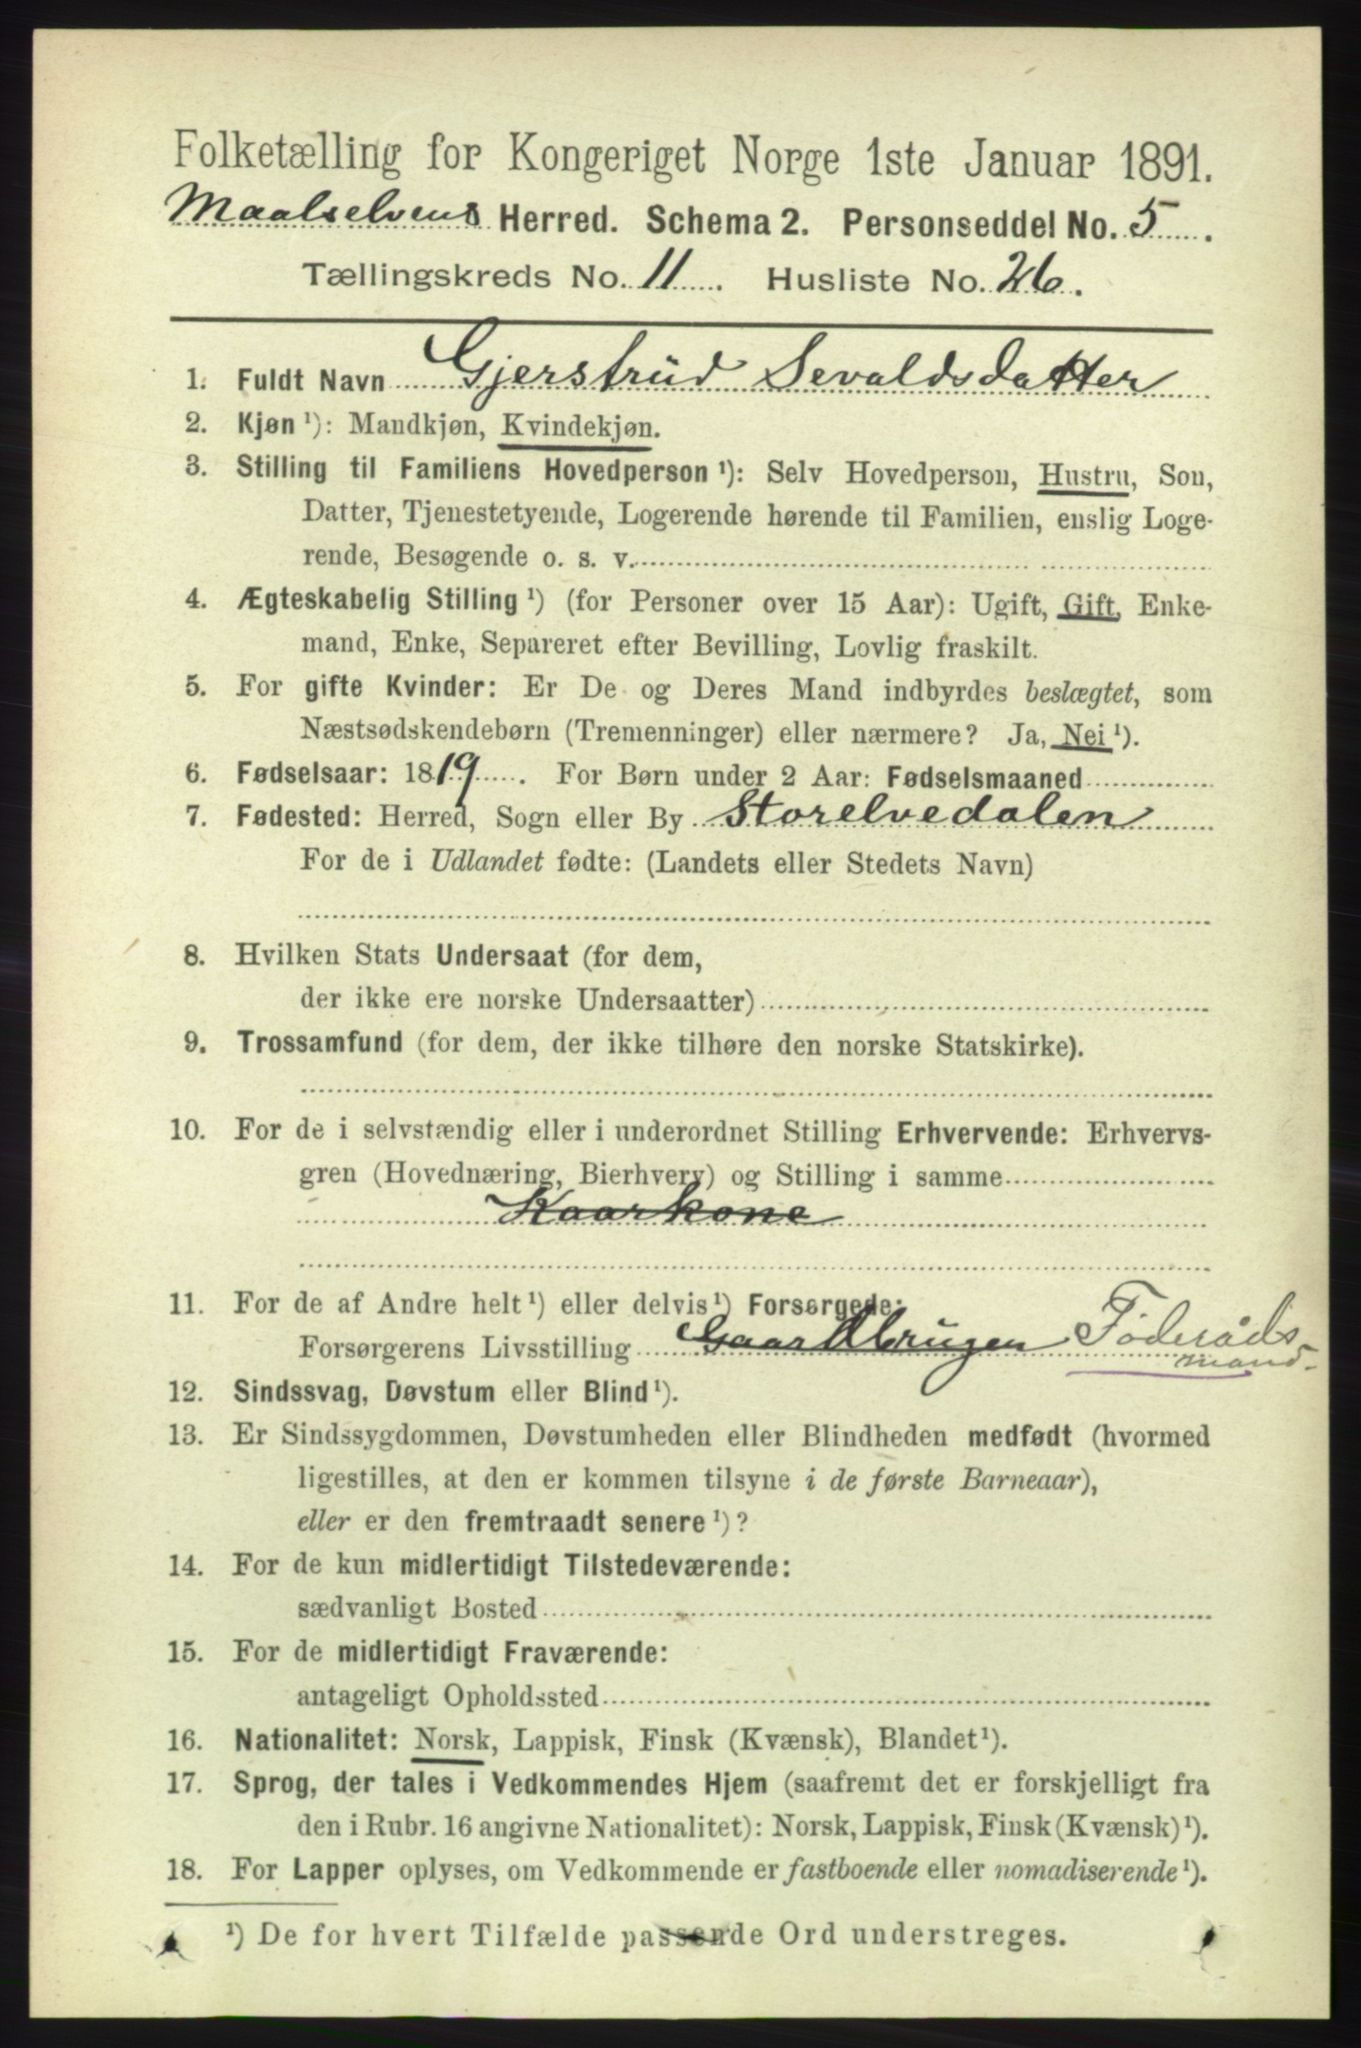 Folketælling for Kongeriget Norge 1ste Januar 1891.
Maalselvens Herred. Schema 2. Personseddel No. 5.
Tællingskreds No. 11. Husliste No. 26.
1. Fuldt Navn Gjerstrüd Sevaldsdatter
2. Kjøn ¹): Mandkjøn, Kvindekjøn.
3. Stilling til Familiens Hovedperson ¹): Selv Hovedperson, Hustru, Son,
Datter, Tjenestetyende, Logerende hørende til Familien, enslig Loge-
rende, Besøgende o. s. v.
4. Ægteskabelig Stilling ¹) (for Personer over 15 Aar): Ugift, Gift, Enke-
mand, Enke, Separeret efter Bevilling, Lovlig fraskilt.
5. For gifte Kvinder: Er De og Deres Mand indbyrdes beslægtet, som
Næstsødskendebørn (Tremenninger) eller nærmere? Ja, Nei ¹).
6. Fødselsaar: 1819. For Børn under 2 Aar: Fødselsmaaned
7. Fødested: Herred, Sogn eller By Storelvedalen
For de i Udlandet fødte: (Landets eller Stedets Navn)
8. Hvilken Stats Undersaat (for dem,
der ikke ere norske Undersaatter)
9. Trossamfund (for dem, der ikke tilhøre den norske Statskirke).
10. For de i selvstændig eller i underordnet Stilling Erhvervende: Erhvervs-
gren (Hovednæring, Bierhverv) og Stilling i samme
Kaarkone
11. For de af Andre helt ¹) eller delvis ¹) Forsørgede:
Forsørgerens Livsstilling Gaardbrugen Föderåds
mand
12. Sindssvag, Døvstum eller Blind ¹).
13. Er Sindssygdommen, Døvstumheden eller Blindheden medfødt (hvormed
ligestilles, at den er kommen tilsyne i de første Barneaar),
eller er den fremtraadt senere ¹)?
14. For de kun midlertidigt Tilstedeværende:
sædvanligt Bosted
15. For de midlertidigt Fraværende:
antageligt Opholdssted
16. Nationalitet: Norsk, Lappisk, Finsk (Kvænsk), Blandet ¹).
17. Sprog, der tales i Vedkommendes Hjem (saafremt det er forskjelligt fra
den i Rubr. 16 angivne Nationalitet): Norsk, Lappisk, Finsk (Kvænsk) ¹).
18. For Lapper oplyses, om Vedkommende er fastboende eller nomadiserende ¹).
¹) De for hvert Tilfælde passende Ord understreges.